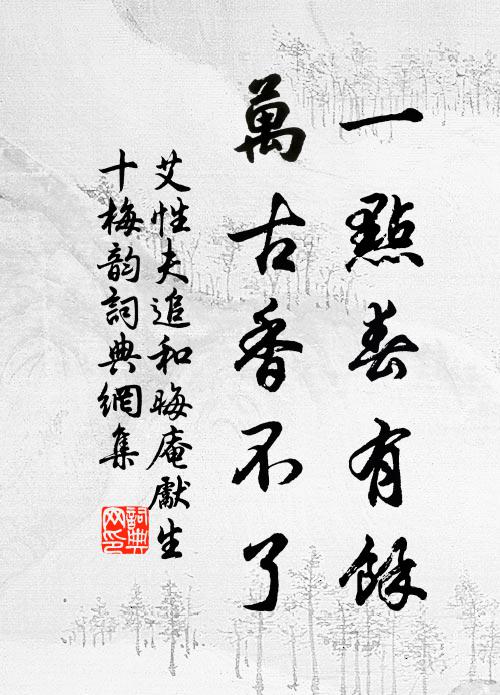 一點春有餘
萬古香不了
艾性夫追和晦庵獻生
十梅韵詞典網集
詞典
网印